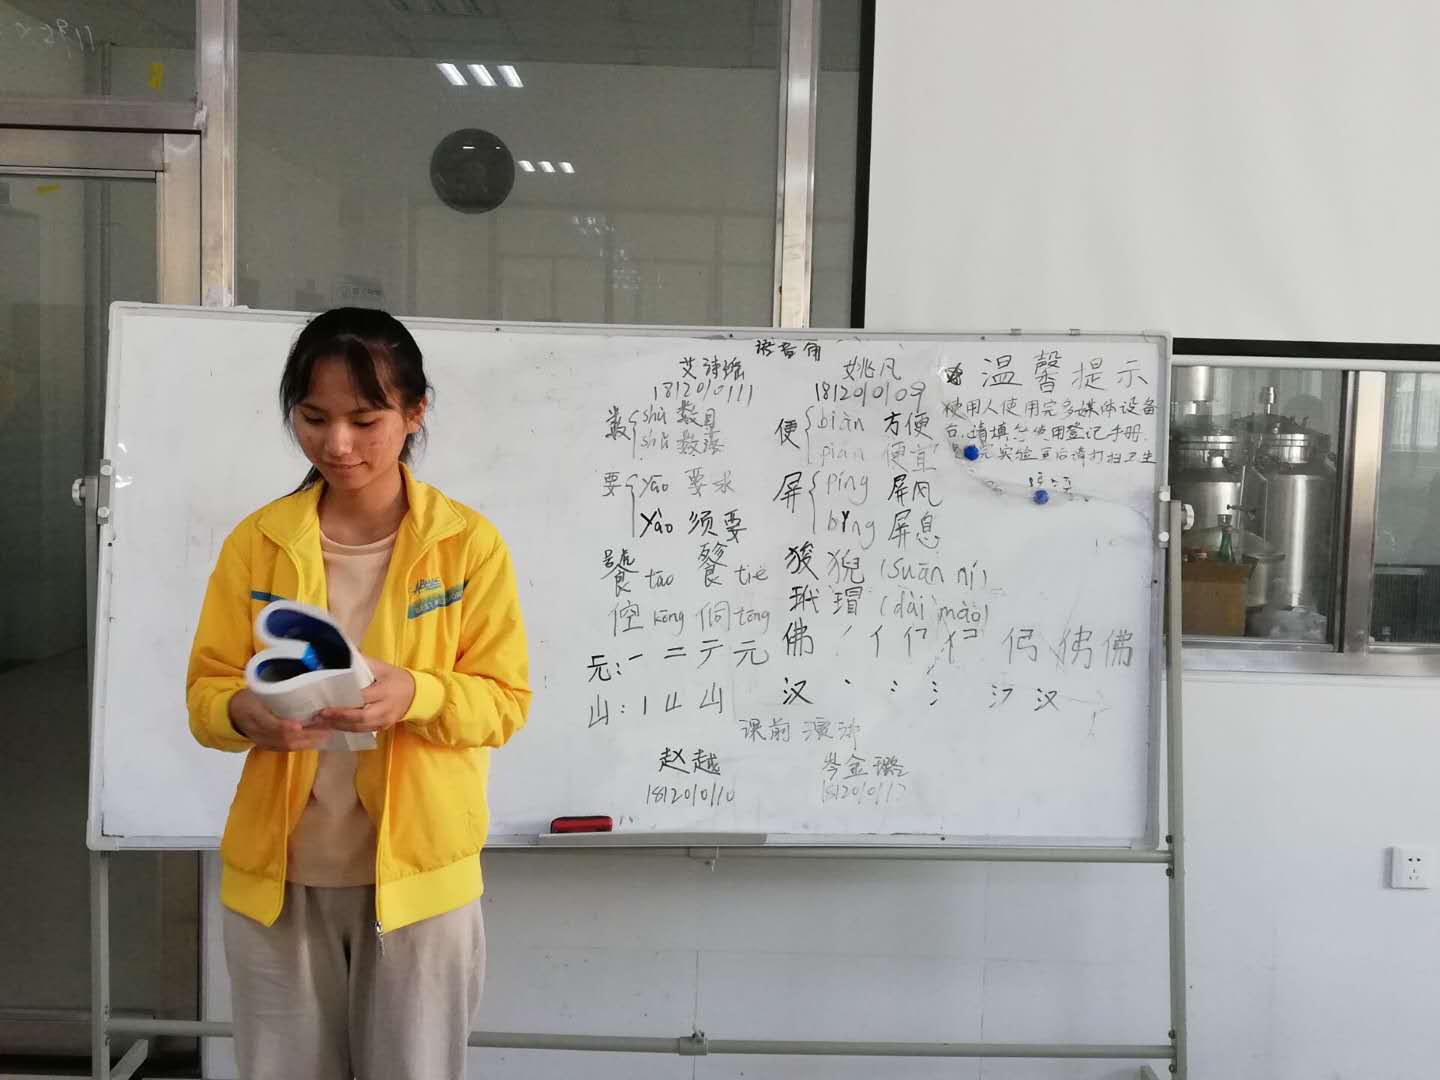 语音角
艾诗瑶 姚凡
1812010111 1812010109
数 shù 数目
shǔ 数落
要 yāo 要求
yào 须要
饕 tāo 餮 tiè
倥 kōng 侗 tóng
元:一 二 亍 元
山:丨 山 山
便 biàn 方便
pián 便宜
屏 píng 屏风
bǐng 屏息
狻猊(suān ní)
玳瑁(dài mào)
佛 佛
汉 丶 冫 氵 汉
课前演讲
赵越 岑金璐
1812010110
温馨提示
使用人使用完多媒体设备
后,请填写使用登记手册.
实验室后请打扫卫生